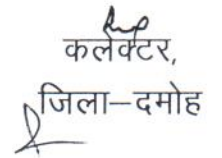 कलेक्टर,
जिला–दमोह